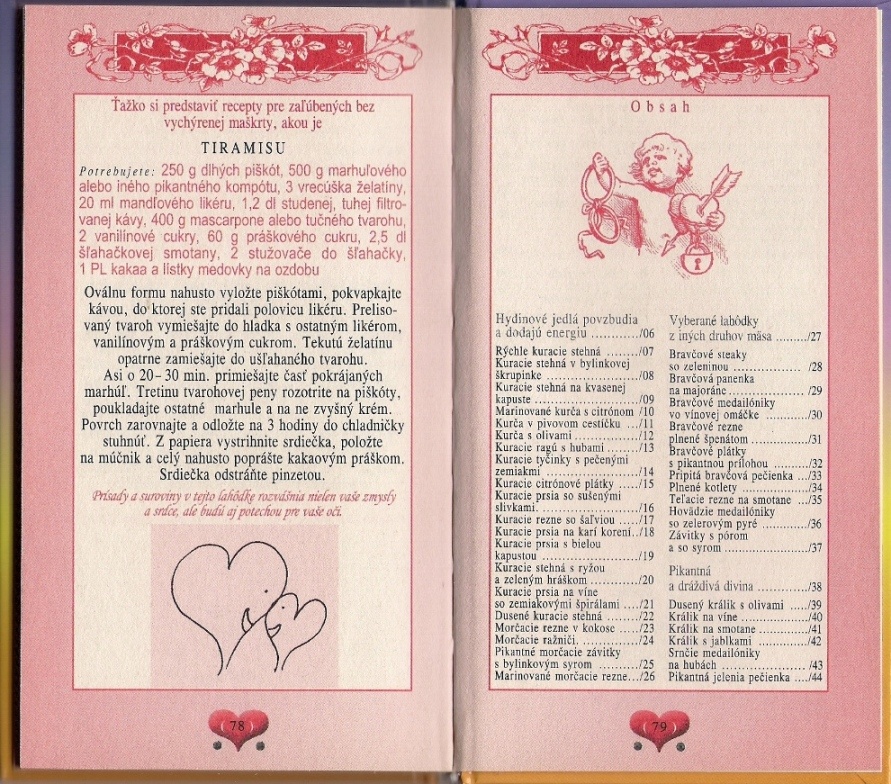 Ťažko si predstaviť recepty pre zaľúbených bez
vychýrenej maškrty, akou je
TIRAMISU
Potrebujete: 250 g dlhých piškót, 500 g marhuľového
alebo iného pikantného kompótu, 3 vrecúška želatiny,
20 ml mandľového likéru, 1,2 dl studenej, tuhej filtro-
vanej kávy, 400 g mascarpone alebo tučného tvarohu,
2 vanilínové cukry, 60 g práškového cukru, 2,5 dl
šľahačkovej smotany, 2 stužovače do šľahačky,
1 PL kakaa a lístky medovky na ozdobu
Oválnu formu nahusto vyložte piškótami, pokvapkajte
kávou, do ktorej ste pridali polovicu likéru. Preliso-
vaný tvaroh vymiešajte do hladka s ostatným likérom,
vanilínovým a práškovým cukrom. Tekutú želatínu
opatrne zamiešajte do ušľahaného tvarohu.
Asi o 20–30 min. primiešajte časť pokrájaných
marhúľ. Tretinu tvarohovej peny rozotrite na piškóty,
poukladajte ostatné marhule a na ne zvyšný krém.
Povrch zarovnajte a odložte na 3 hodiny do chladničky
stuhnúť. Z papiera vystrihnite srdiečka, položte
na múčnik a celý nahusto poprášte kakaovým práškom.
Srdiečka odstráňte pinzetou.
Prísady a suroviny v tejto lahôdke rozvášnia nielen vaše zmysly
a srdce, ale budú aj potechou pre vaše oči.
78
Obsah
Hydinové jedlá povzbudia
a dodajú energiu ............/06
Rýchle kuracie stehná ......../07
Kuracie stehná v bylinkovej
škrupinke ......................../08
Kuracie stehná na kvasenej
kapuste ........................../09
Marinované kurča s citrónom /10
Kurča v pivovom cestíčku .../11
Kurča s olivami ................/12
Kuracie ragú s hubami ......./13
Kuracie tyčinky s pečenými
zemiakmi ......................../14
Kuracie citrónové plátky ...../15
Kuracie prsia so sušenými
slivkami. ........................./16
Kuracie rezne so šaľviou ..../17
Kuracie prsia na karí korení../18
Kuracie prsia s bielou
kapustou ........................./19
Kuracie stehná s ryžou
a zeleným hráškom .........../20
Kuracie prsia na víne
so zemiakovými špirálami ..../21
Dusené kuracie stehná ......./22
Morčacie rezne v kokose ..../23
Morčacie ražniči. ............../24
Pikantné morčacie závitky
s bylinkovým syrom ........../25
Marinované morčacie rezne.../26
Vyberané lahôdky
z iných druhov mäsa ........./27
Bravčové steaky
so zeleninou ...................../28
Bravčová panenka
na majoráne ....................../29
Bravčové medailóniky
vo vínovej omáčke ............./30
Bravčové rezne
plnené špenátom ................/31
Bravčové plátky
s pikantnou prílohou .........../32
Pripitá bravčová pečienka .../33
Plnené kotlety .................../34
Teľacie rezne na smotane ..../35
Hovädzie medailóniky
so zelerovým pyré ............./36
Závitky s pórom
a so syrom ......................./37
Pikantná
a dráždivá divina ............../38
Dusený králik s olivami ...../39
Králik na víne .................../40
Králik na smotane ............../41
Králik s jablkami .............../42
Srnčie medailóniky
na hubách ......................../43
Pikantná jelenia pečienka ..../44
79